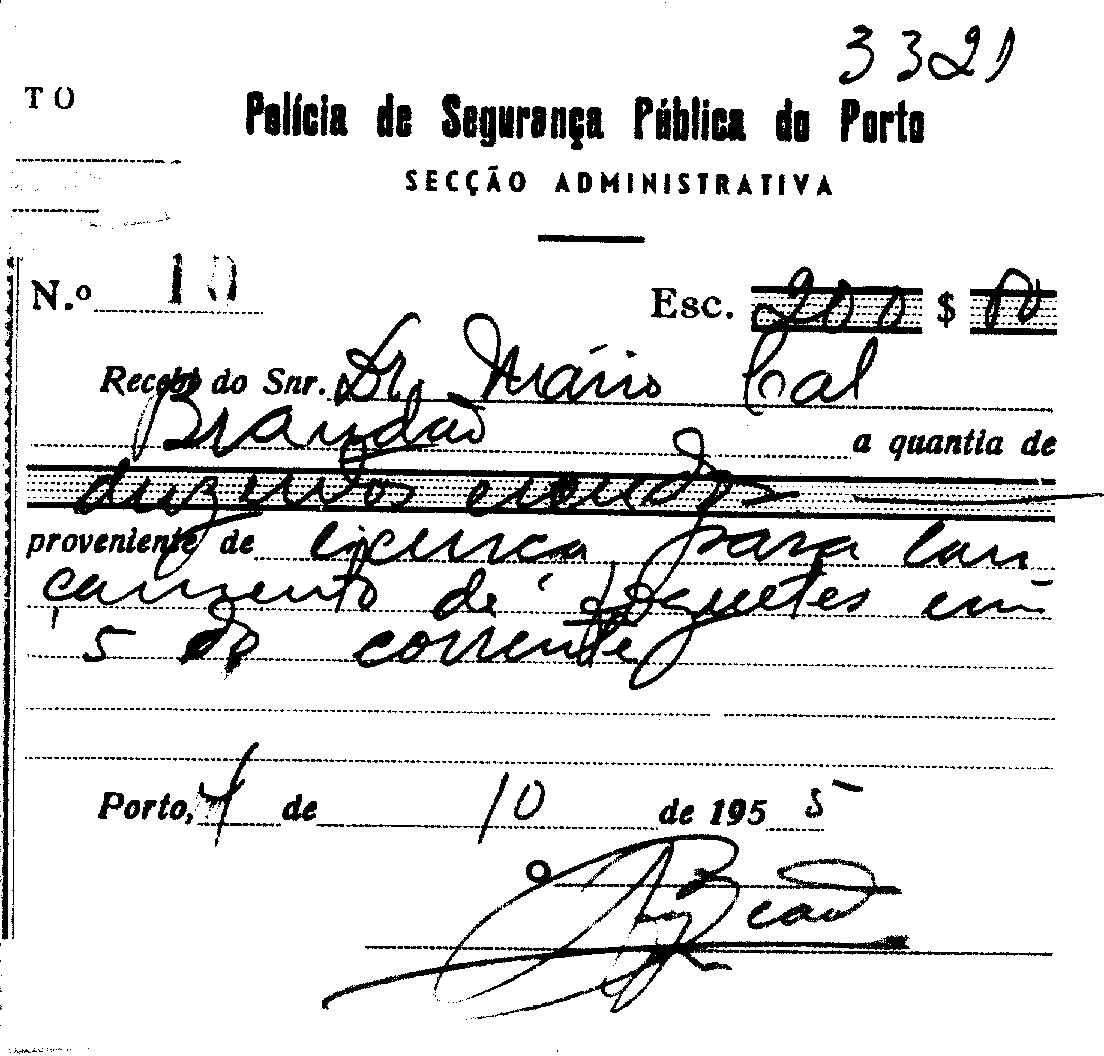 3321
TO
Polícia de Segurança Pública do Porto
SECÇÃO ADMINISTRATIVA
N.º 10 Esc. 200 $ 00
Recebi do Snr. Dr. Mário Cal
Brandão a quantia de
duzentos escudos
proveniente de licença para lan
çamento de foguetes em
5 do corrente
Porto, 4 de 10 de 1955
O